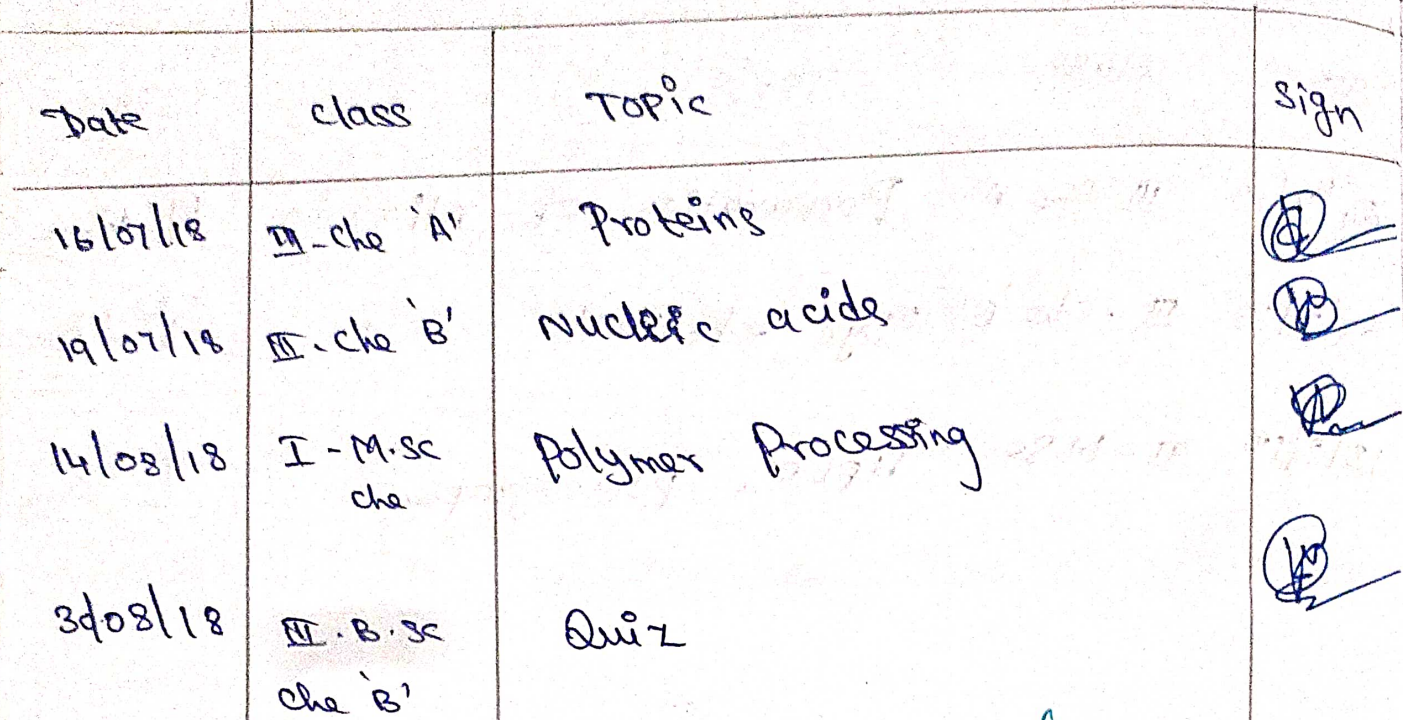 Date class Topic Sign
16/07/18 III-che 'A' Proteins
19/07/18 III-che 'B' Nucleic acids
14/08/18 I-M.sc Polymer Processing
che
/08/18 III.B.sc Quiz
che 'B'